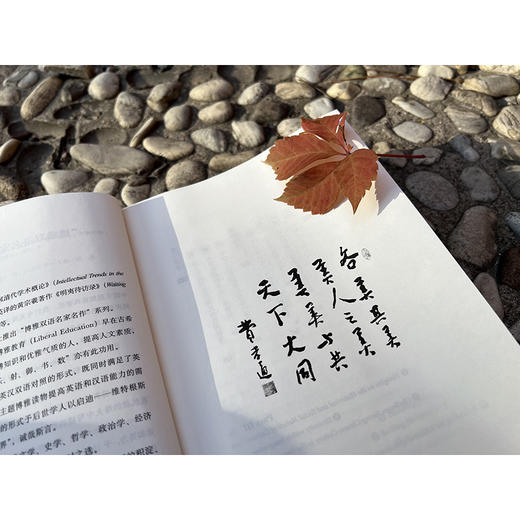 清代学术概论》(Intellectual Trends in the
英译的黄宗羲著作《明夷待访录》(Waiting
等。
推出“博雅双语名家名作”系列。
博雅教育(Liberal Education)早在古希
知识和优雅气质的人,提高人文素质,
、射、御、书、数”亦有此功用。
英汉双语对照的形式,既同时满足了英
主题博雅读物提高英语和汉语能力的需
的形式于后世学人以启迪——维特根斯
界”,诚哉斯言。
文学、史学、哲学、政治学、经济
时之选。
的积淀,
各美其美
美人之美
美美与共
天下大同
费孝通